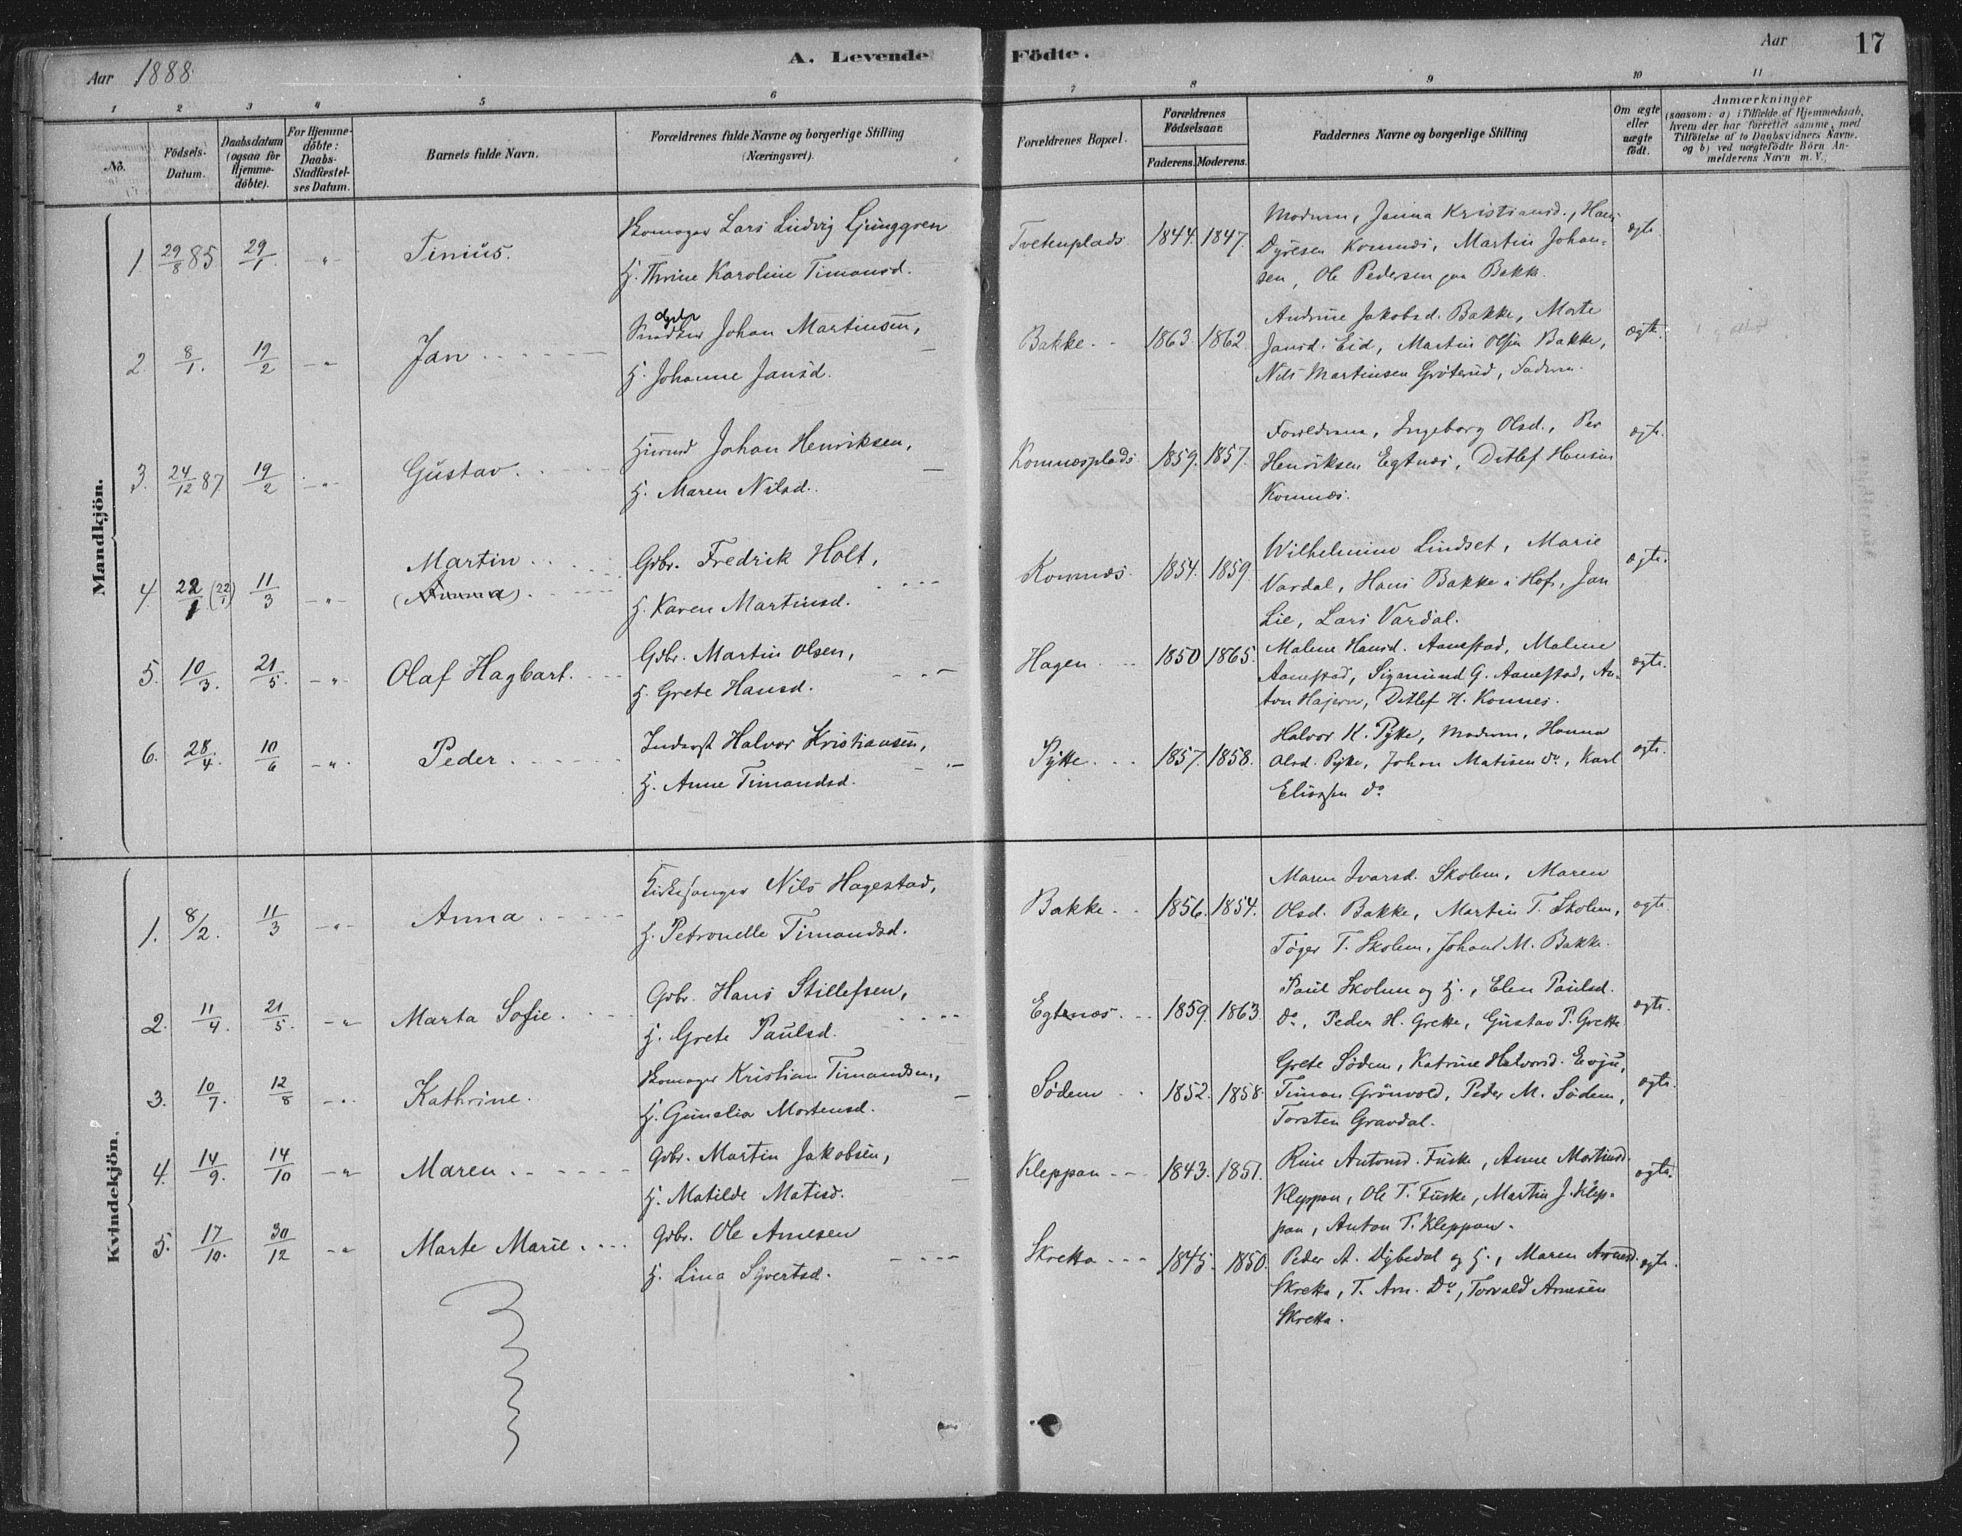 Aar 1888.
A. Levende Födte.
Aar 17
1 2 3 4 5 6 7 8 9 10 11
No.
Födsels-Datum.
Daabsdatum (ogsaa for Hjemme-döbte).
For Hjemme-döbte: Daabs-Stadfæstel-ses Datum.
Barnets fulde Navn.
Forældrenes fulde Navne og borgerlige Stilling (Næringsvei).
Forældrenes Bopæl.
Forældrenes Födselsaar.
Faderens. Moderens.
Faddernes Navne og borgerlige Stilling
Om ægte eller uægte födt.
Anmærkninger
(saasom: a) i Tilfælde af Hjemmedaab, hvem der har forrettet samme, med Tilföielse af to Daabsvidners Navne, og b) ved uægtefödte Börn Anmelderens Navn m. V.)
Mandkjön.
1 29/8 85 29/1. - " Tinius.
Skomager Lars Ludvig Ljunggren
H. Thrine Karoline Timansd.
Tvetenplads 1844. 1847.
Modern, Janna Kristiansd., Hans
Dyresen Komnæs, Martin Johan-
sen, Ole Pedersen paa Bakke.
ægte.
2 8/1. 19/2 - " Jan
Johan Martinsen,
H. Johanne Jansd.
Bakke. 1863. 1862.
Andrine Jakobsd. Bakke, Marte
Jansd. Eid, Martin Olsen Bakke,
Nils Martinsen Gröterud, Fadren.
ægte.
3. 24/12 87 19/2 - " Gustav.
Johan Henriksen,
H. Maren Nilsd.
Komnæsplads 1859. 1857.
Forældrene, Ingeborg Olsd., Per
Henriksen Egtnæs, Ditlef Hansen
Komnæs.
ægte.
4. 22/1 (22/1) 11/3 - " Martin
(Anna)
Gdbr. Fredrik Holt,
H. Karen Martinsd.
Komnæs. 1854. 1859
Wilhelmine Lindset, Marie
Vardal, Hans Bakke i Hof, Jan
Lie, Lars Vardal.
ægte.
5. 10/3. 21/5. - " Olaf Hagbart.
Gdbr. Martin Olsen,
H. Grete Hansd.
Hagen. 1850 1865.
Malene Hansd. Aanestad, Malene
Aanestad, Sigmund G. Aanestad, An-
ton Hajern, Ditlef H. Komnes.
ægte.
6. 28/4. 10/6 - " Peder
Inderst Halvor Kristiansen,
H. Anne Timandsd.
Pytte. 1857. 1858.
Halvor K. Pytte, Modern, Hanna
Olsd. Pytte, Johan Matisen do, Karl
Eliassen do
ægte.
Kvindekjön.
1. 8/2. 11/3 - " Anna
Kirkesanger Nils Hagestad,
H. Petronelle Timandsd.
Bakke. 1856. 1854.
Maren Ivarsd. Skolem, Maren
Olsd. Bakke, Martin T. Skolem,
Töger T. Skolem, Johan M. Bakke.
ægte.
2. 11/4. 21/5. - " Marta Sofie.
Gdbr. Hans Stillefsen,
H. Grete Paulsd.
Egtnæs. 1859. 1863.
Paul Skolem og H., Elen Paulsd.
Do, Peder H. Grette, Gustav P. Grette
ægte.
3. 10/7. 12/8 - " Kathrine.
Skomager Kristian Timandsen,
H. Gunelia Mortensd.
Södem 1852. 1858.
Grete Södem, Katrine Halvorsd. Evju,
Timan Grönvold, Peder M. Södem,
Torsten Gravdal.
ægte.
4. 14/9. 14/10 - " Maren
Gdbr. Martin Jakobsen,
H. Matilde Matisd.
Kleppan 1843. 1851.
Rine Antonsd. Fuske, Anne Martinsd.
Kleppan, Ole T. Fuske, Martin J. Klep-
pan, Anton T. Kleppan.
ægte.
5. 17/10. 30/12 - " Marte Marie
Gdbr. Ole Arnesen
H. Lina Syvertsd.
Skretta 1845. 1850.
Peder A. Dybedal og H., Maren Arnesd.
Skretta, T. Arn. Do, Torvald Arnesen
Skretta.
ægte.